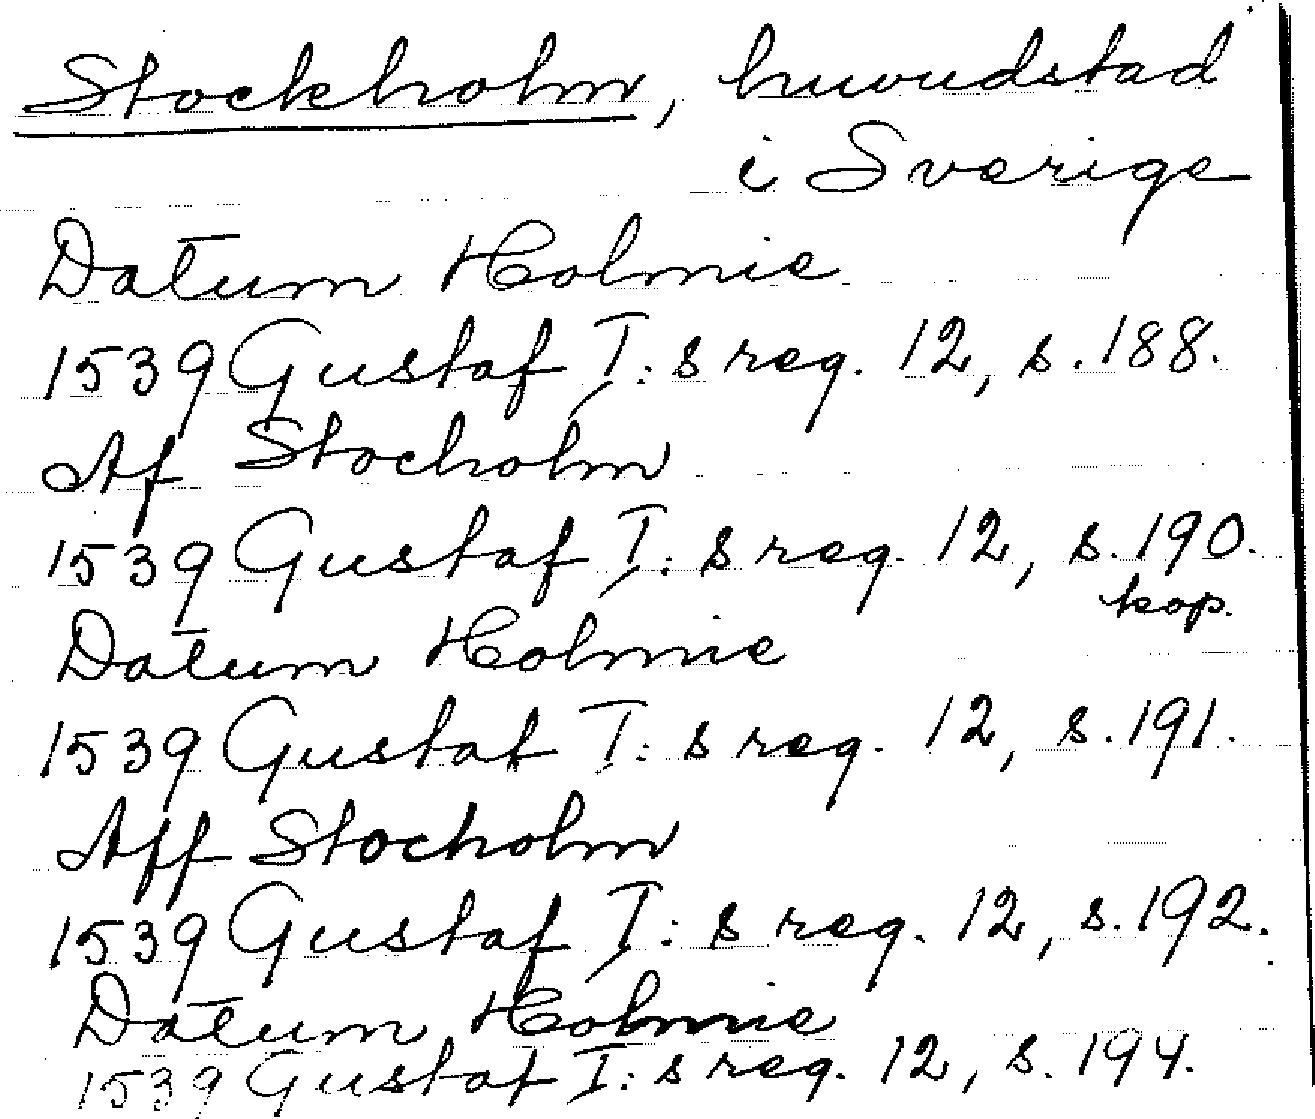 Stockholm, huvudstad
i Sverige
Datum Holmie
1539 Gustaf I:s reg. 12, s. 188.
Af Stocholm
1539 Gustaf I:s reg. 12, s. 190.
kop.
Datum Holmie
1539 Gustaf I:s reg. 12, s. 191.
Aff Stocholm
1539 Gustaf I:s reg. 12, s. 192.
Datum Holmie
1539 Gustaf I:s reg. 12, s. 194.